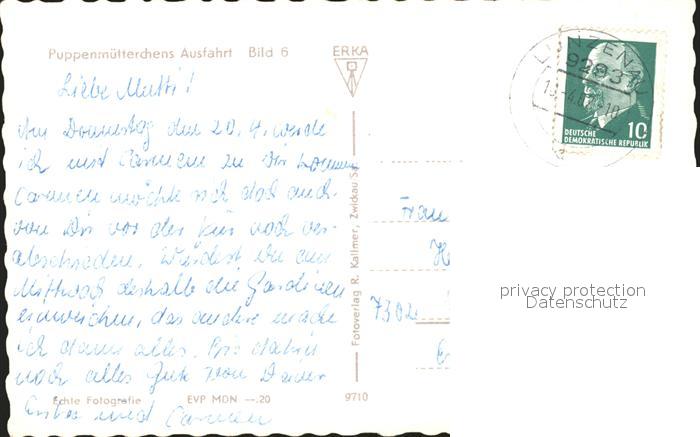 Puppenmütterchens Ausfahrt Bild 6
ERKA
Liebe Mutti!
Am Donnerstag den 20.4. werde
ich mit Carmen zu Dir kommen
Carmen möchte sich doch auch
von Dir vor der Kur noch ver-
abschieden. Würdest Du am
Mittwoch deshalb die Gardinen
einweichen, das andere mache
ich dann alles. Bis dahin
noch alles Gute von Deiner
und Carmen
Echte Fotografie EVP MDN --.20 9710
Fotoverlag R. Kallmer, Zwickau Sa.
LUNZENAU
9293
DEUTSCHE
DEMOKRATISCHE REPUBLIK
10
Frau
H
7302
privacy protection
Datenschutz